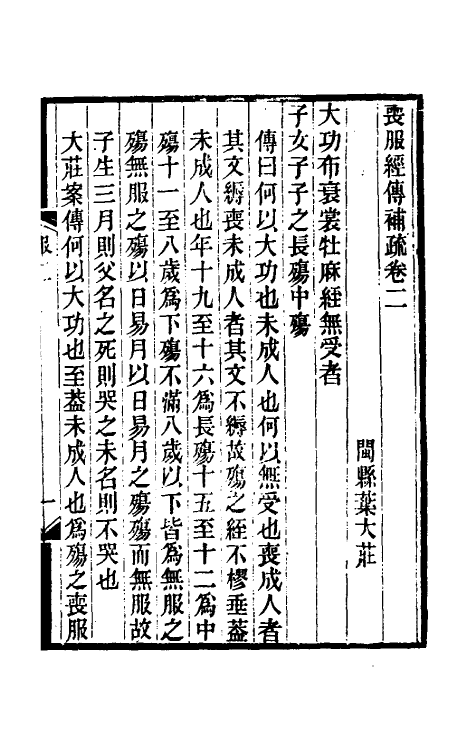 喪服經傳補疏卷二
閩縣葉大莊
大功布衰裳牡麻絰無受者
子女子子之長殤中殤
傳曰何以大功也未成人也何以無受也喪成人者
其文縟喪未成人者其文不縟故殤之絰不樛垂葢
未成人也年十九至十六爲長殤十五至十二爲中
殤十一至八歲爲下殤不滿八歲以下皆爲無服之
殤無服之殤以日易月以日易月之殤殤而無服故
子生三月則父名之死則哭之未名則不哭也
大莊案傳何以大功也至葢未成人也爲殤之喪服